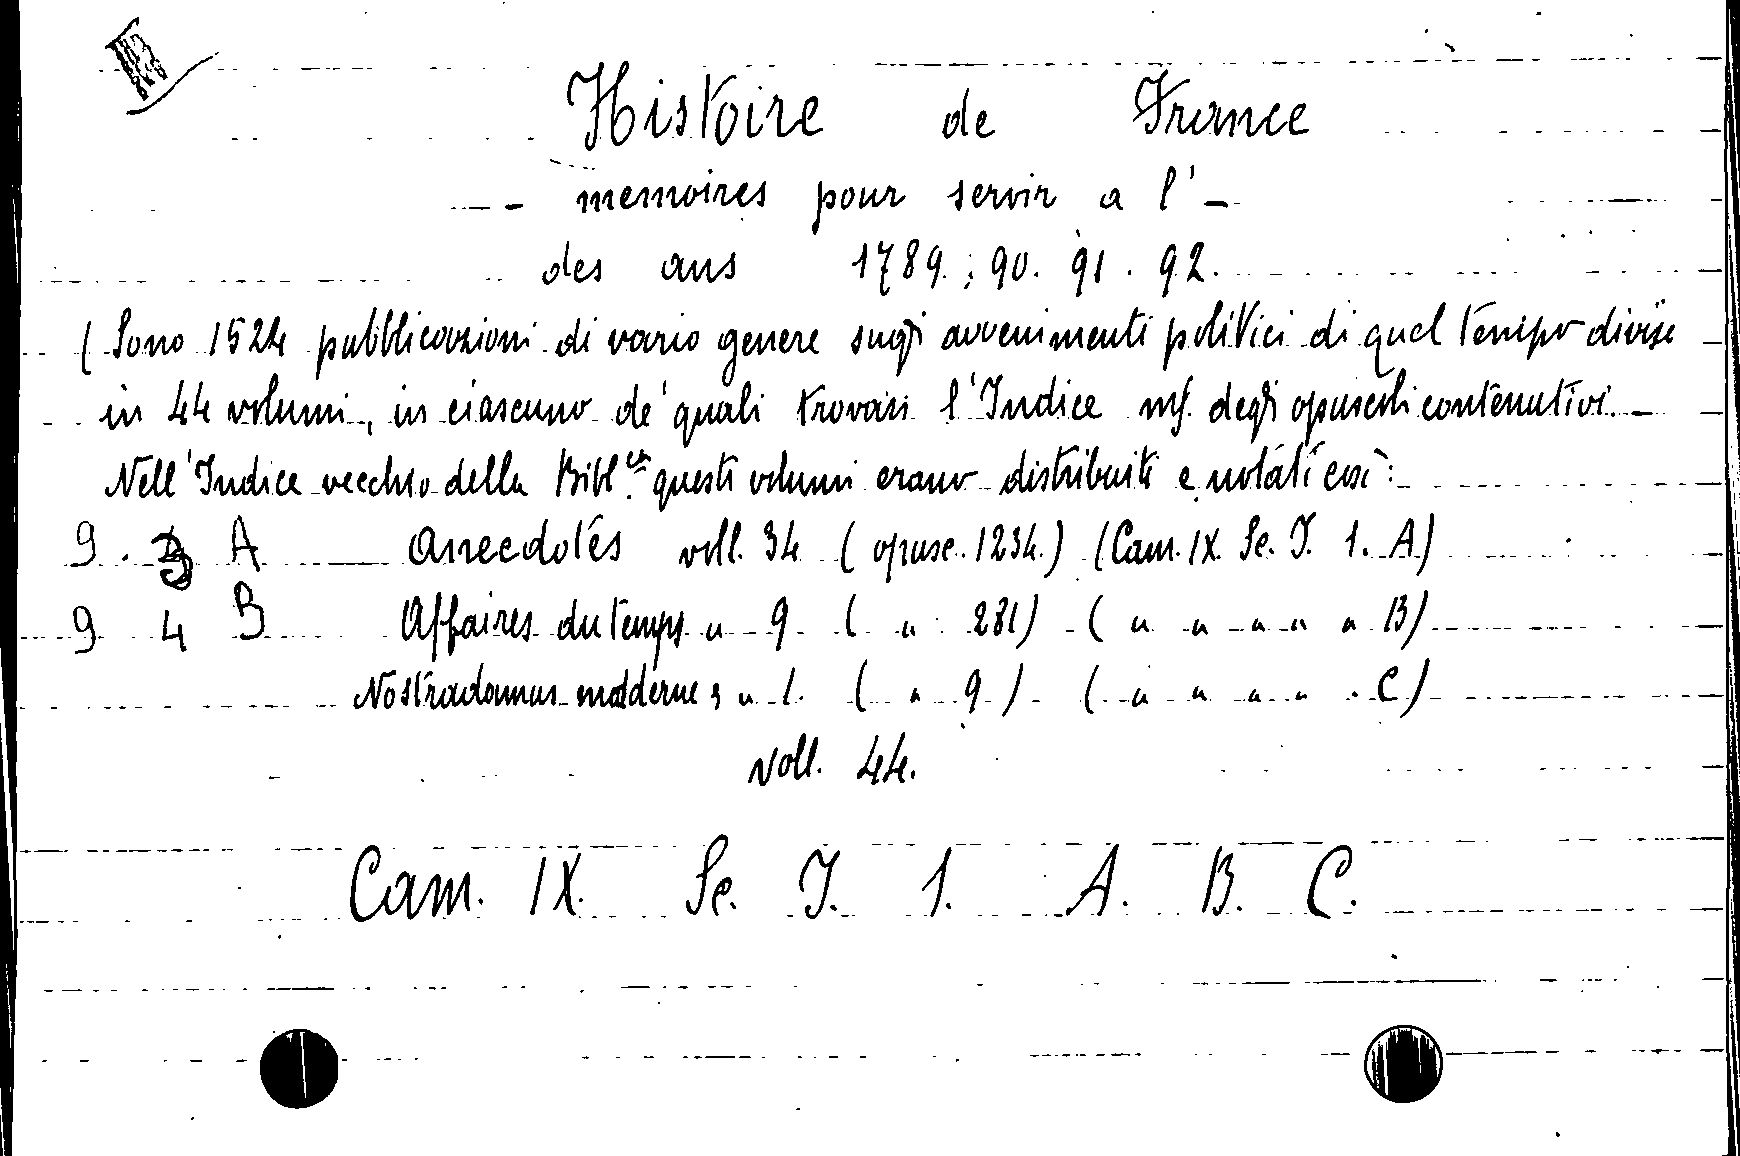 Histoire de France
- memoires pour servir a l' -
des ans 1789 : 90. 91. 92.
( Sono 1524 pubblicazioni di vario genere sugli avvenimenti politici di quel tempo divise
in 44 volumi, in ciascuno de' quali trovasi l'Indice ms. degli opuscoli contenutivi. -
Nell'Indice vecchio della Bibl.ca questi volumi erano distribuiti e notati così:
9. 3 A Anecdotés voll. 34 ( opusc. 1234.) (Cam. IX. Se. I. 1. A)
9 4 B Affaires du temps " 9 ( " 281) ( " " " " " B)
Nostradamus moderne " 1. ( " 9 ) ( " " " " . C)
Voll. 44.
Cam. IX. Se. I. 1. A. B. C.